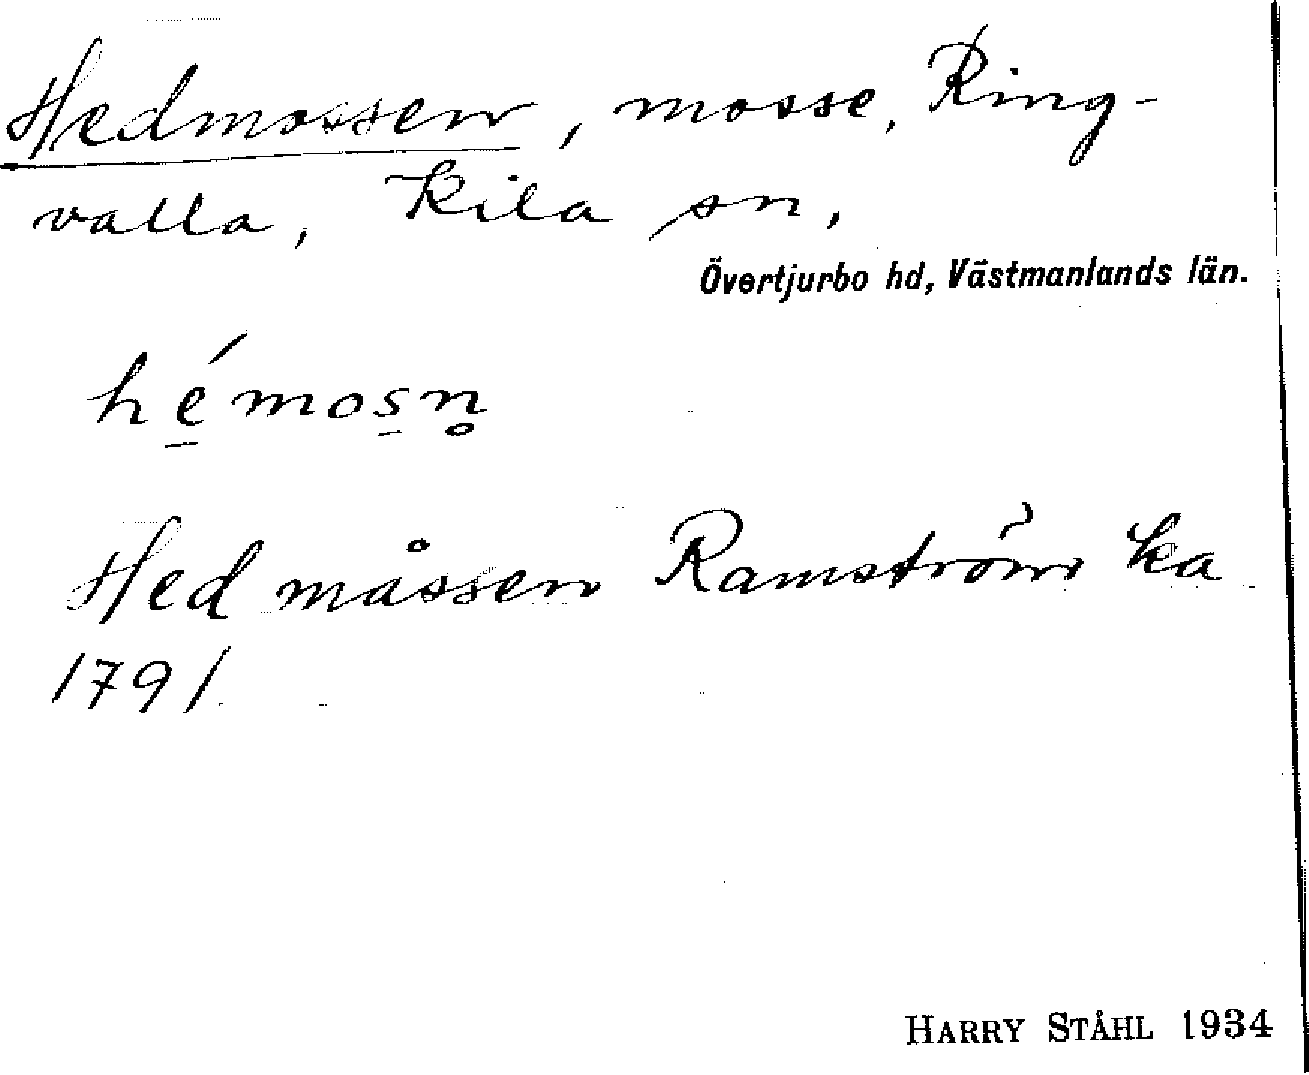 Hedmossen, mosse, Ring-
valla, Kila sn,
Övertjurbo hd, Västmanlands län.
hé̱mos̱n̥
Hedmåssen Ramström ka
1791
HARRY STÅHL 1934